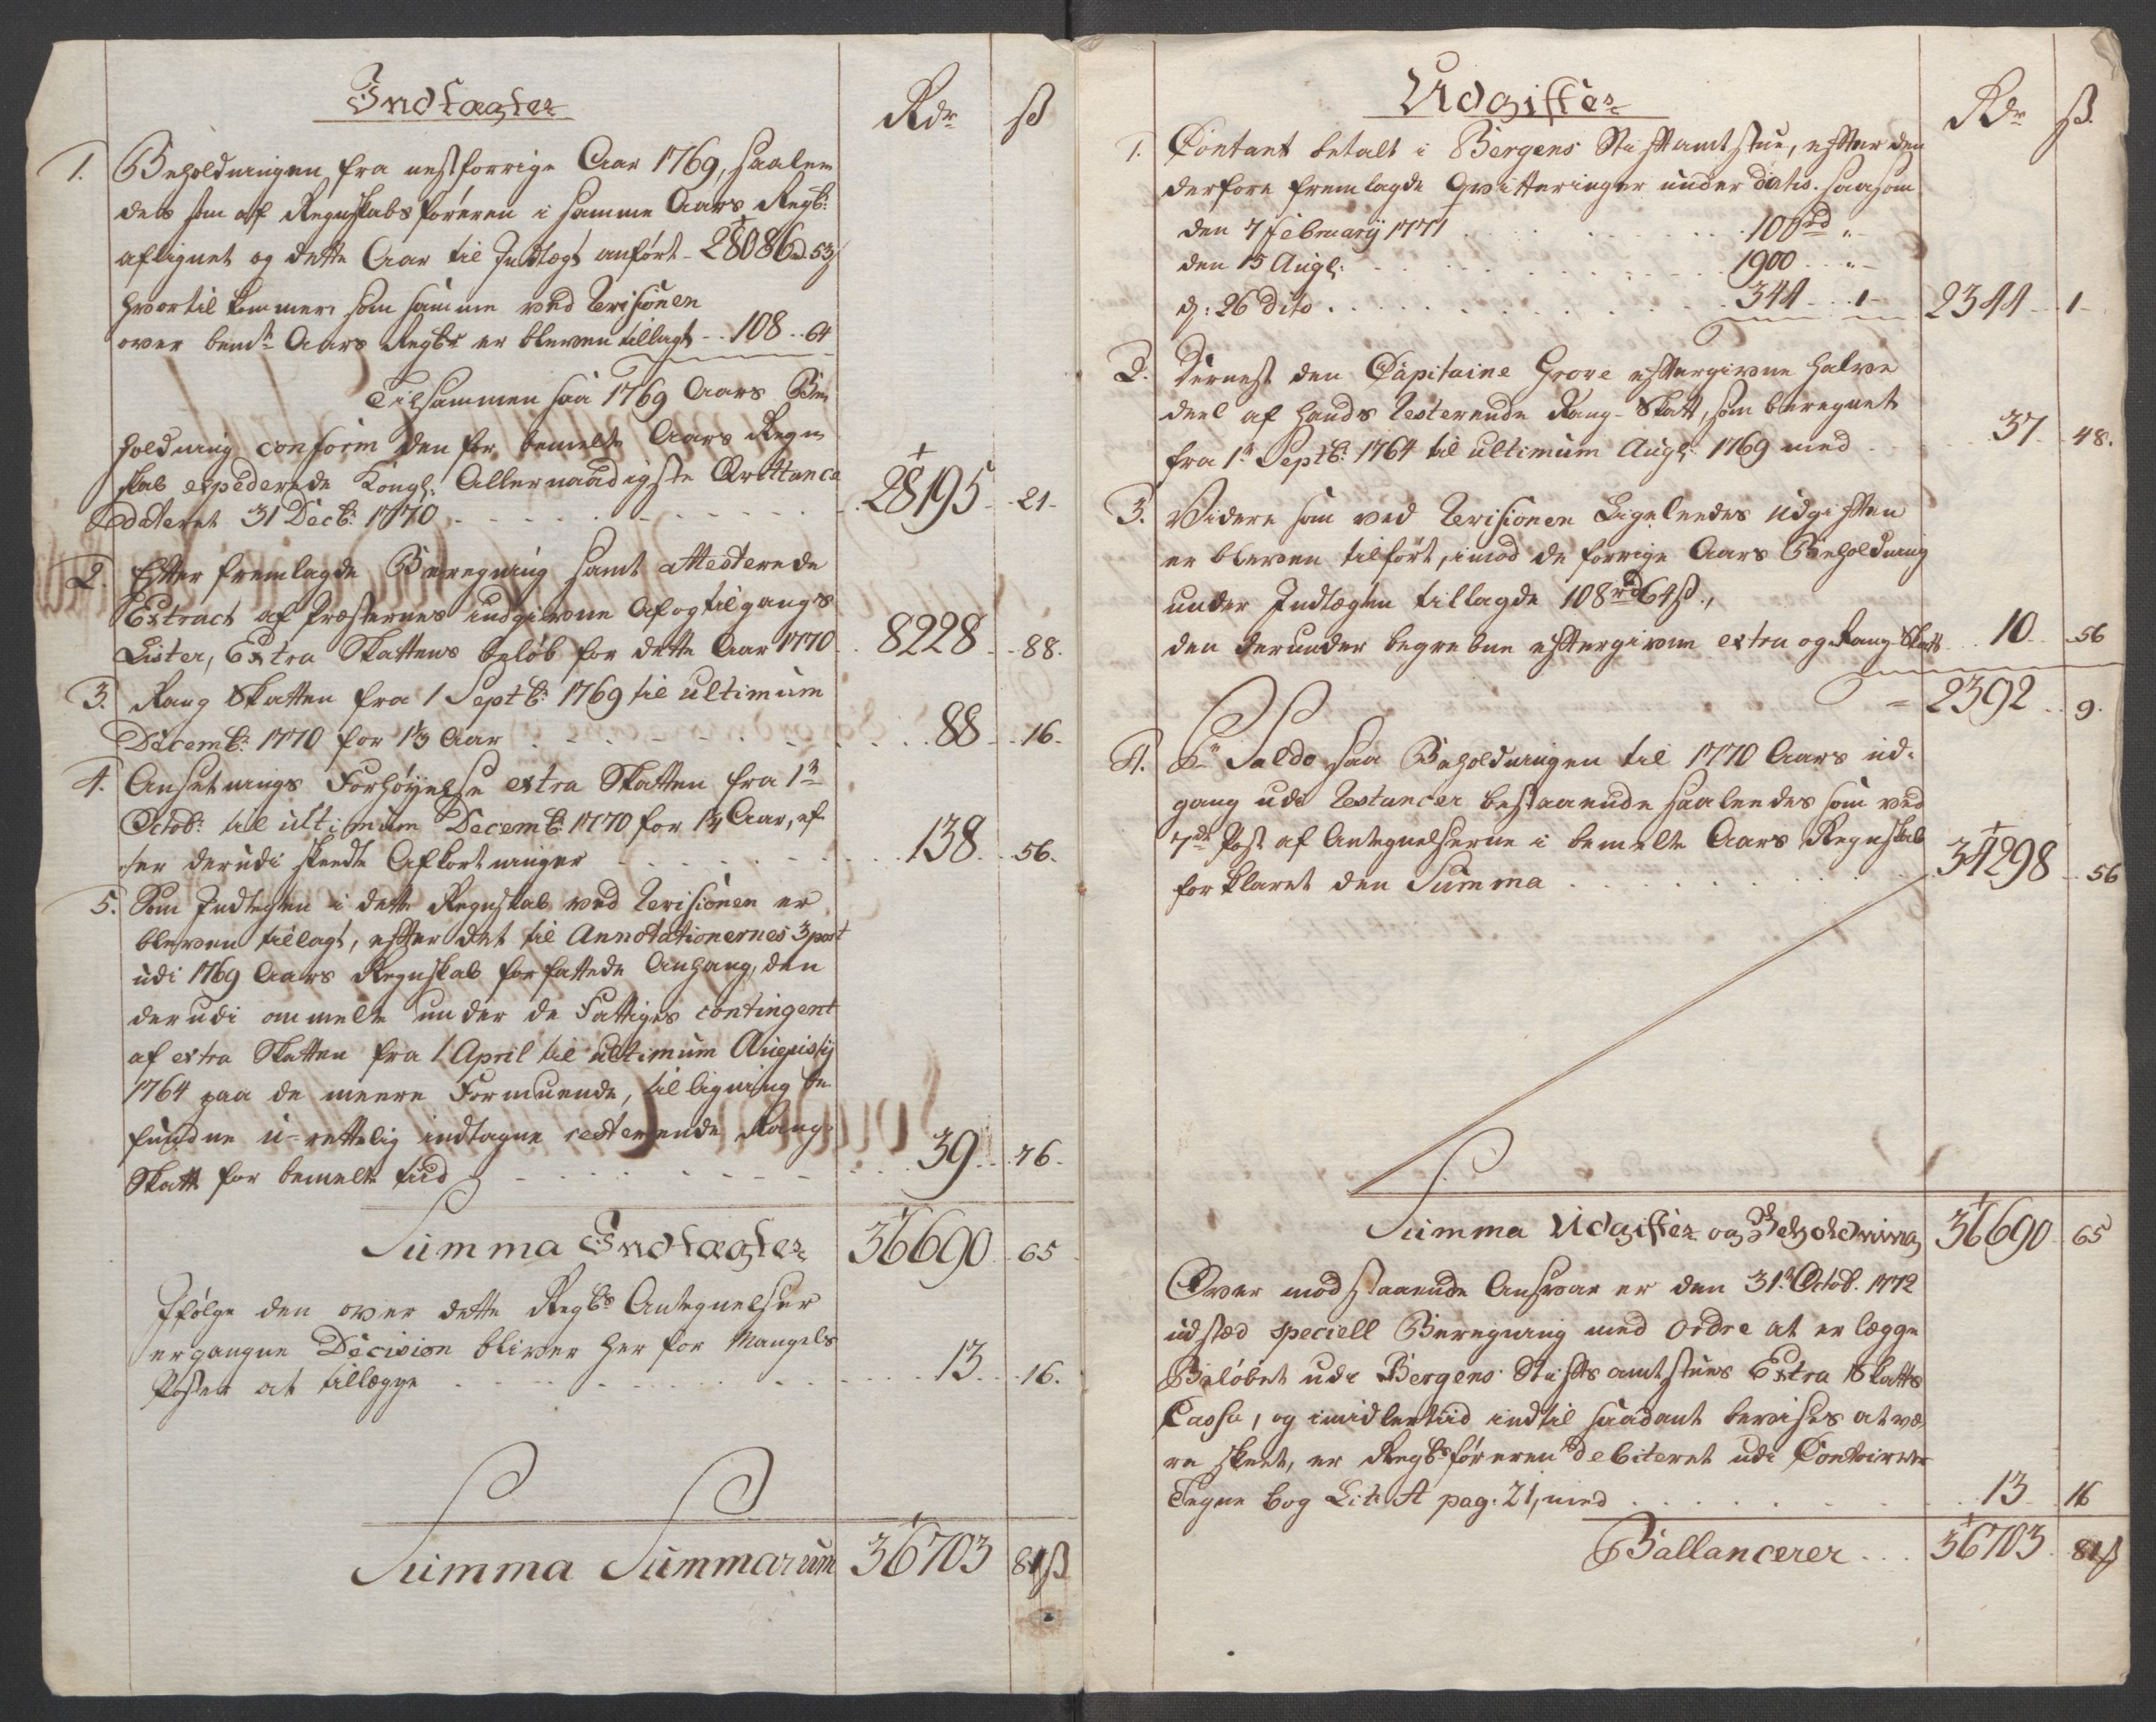 Indtægter
Rdr ß
1. Beholdningen fra nestforrige Aar 1769, saalen
des som af Regnskabsføreren i samme Aars Regsb:
aflignet og dette Aar til Indtægt anført - 28086 rd. 53ß
hvortil kommer som samme ved Revisionen
over bemte Aars Regsb: er bleven tillagt - - 108 .. 64
Tilsammen saa 1769 Aars Be-
holdning conform den for bemelte Aars Regn-
skab expederede Kongl: Allernaadigste Qvittance
dateret 31 Decb: 1770 - - - 28195 - 21 -
2. Efter fremlagde Beregning samt attesterede
Extract af Præsternes indgivne Af og tilgangs
Lister, Extra Skattens beløb for dette Aar 1770 . 8228 - 88.
3. Rang Skatten fra 1 Septb: 1769 til ultimum
Decemb: 1770 for 1⅓ Aar - - - 88 - 16 -
4. Ansetnings Forhøyelse extra Skatten fra 1te
Octob: til ultimum Decemb: 1770 for 1¼ Aar, ef-
ter derudi skeedte Afkortninger - - - 138 . 56.
5. Som Indtegten i dette Regnskab ved Revisionen er
bleven tillagt, efter det til Annotationernes 3 post
udi 1769 Aars Regnskab forfattede Anhang, den
derudi ommelte under de Fattiges contingent
af extra Skatten fra 1 April til ultimum Augusty
1764 paa de meere Formuende, til ligning be-
fundne u-rettelig indtagne resterende Rang-
Skatt for bemelte tiid - - - 39 .. 76 -
Summa Indtægter 36690 .. 65
Ifølge den over dette Regsbs Antegnelser
ergangne Decision bliver her for Mangels
Poster at tillegge - - - 13 .. 16.
Summa Summarum 36703 81ß
Udgifter
Rdr ß.
1. Contant betalt i Bergens Stiftamtstue, efter den
derfore fremlagde Qvitteringer under datis. saasom
den 7 February 1771 . . . 100 rd "-
den 15 Aug: . . . 1900 .. "-
d: 26 dito . . . 344 .. 1- 2344 .. 1-
2. Dernest den Capitaine Grove eftergivne halve
deel af hands resterende Rang-Skatt, som beregnet
fra 1te Septb: 1764 til ultimum Aug: 1769 med . 37 . 48.
3. Videre som ved Revisionen Ligeledes udgiften
er bleven tilført, imod de forrige Aars Beholdning
under Indtægten tillagde 108 rd 64ß.,
den derunder begrebne eftergivne extra og Rang Skatt . 10 . 56
= 2392 .. 9.
4. Pr Saldo saa Beholdningen til 1770 Aars ud-
gang udi Restancer bestaaende saaledes som ved
7de Post af Antegnelserne i bemelte Aars Regnskab
forklaret den Summa . . . 34298 .. 56
Summa Udgifter og Beholdning 36690 .. 65
Over modstaaende Ansvar er den 31te Octob. 1772
udstæd speciell Beregning med ordre at erlegge
Beløbet udi Bergens Stiftsamtstues Extra Skatts
Cassa, og imidlertiid indtil saadant bevises at væ-
re skeet, er Regsbsføreren debiteret udi Contoirets
Tegne bog Lit: A pag: 21, med . . . 13 . 16
Ballancerer . . 36703 . 81ß